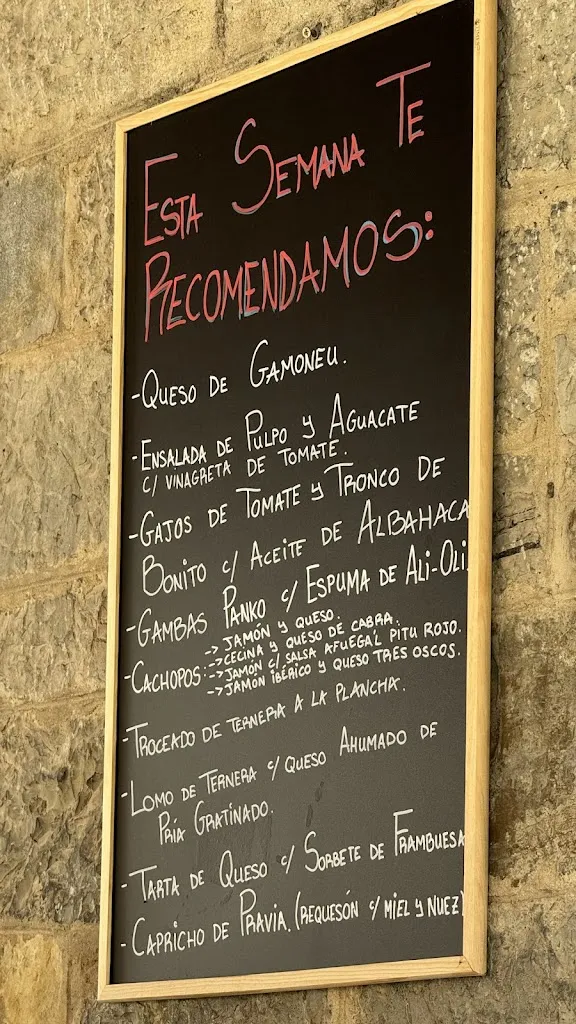 Esta Semana Te
Recomendamos:
-Queso de Gamoneu.
-Ensalada de Pulpo y Aguacate
c/ vinagreta de tomate.
-Gajos de Tomate y Tronco de
Bonito c/ Aceite de Albahaca
-Gambas Panko c/ Espuma de Ali-Oli.
-Cachopos:-> Jamón y queso.
-> Cecina y queso de cabra.
-> Jamón c/ salsa afuega'l pitu rojo.
-> Jamón ibérico y queso tres oscos.
-Troceado de ternera a la plancha.
-Lomo de Ternera c/ queso Ahumado de
Pría Gratinado.
-Tarta de Queso c/ Sorbete de Frambuesa
-Capricho de Pravia. (Requesón c/ miel y nuez)